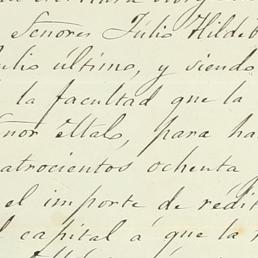 Señores Julio Hildeb
ulio último, y siendo
la facultad que la
ñor Malo, para ha
atrocientos ochenta
el importe de redit
l capital á que la